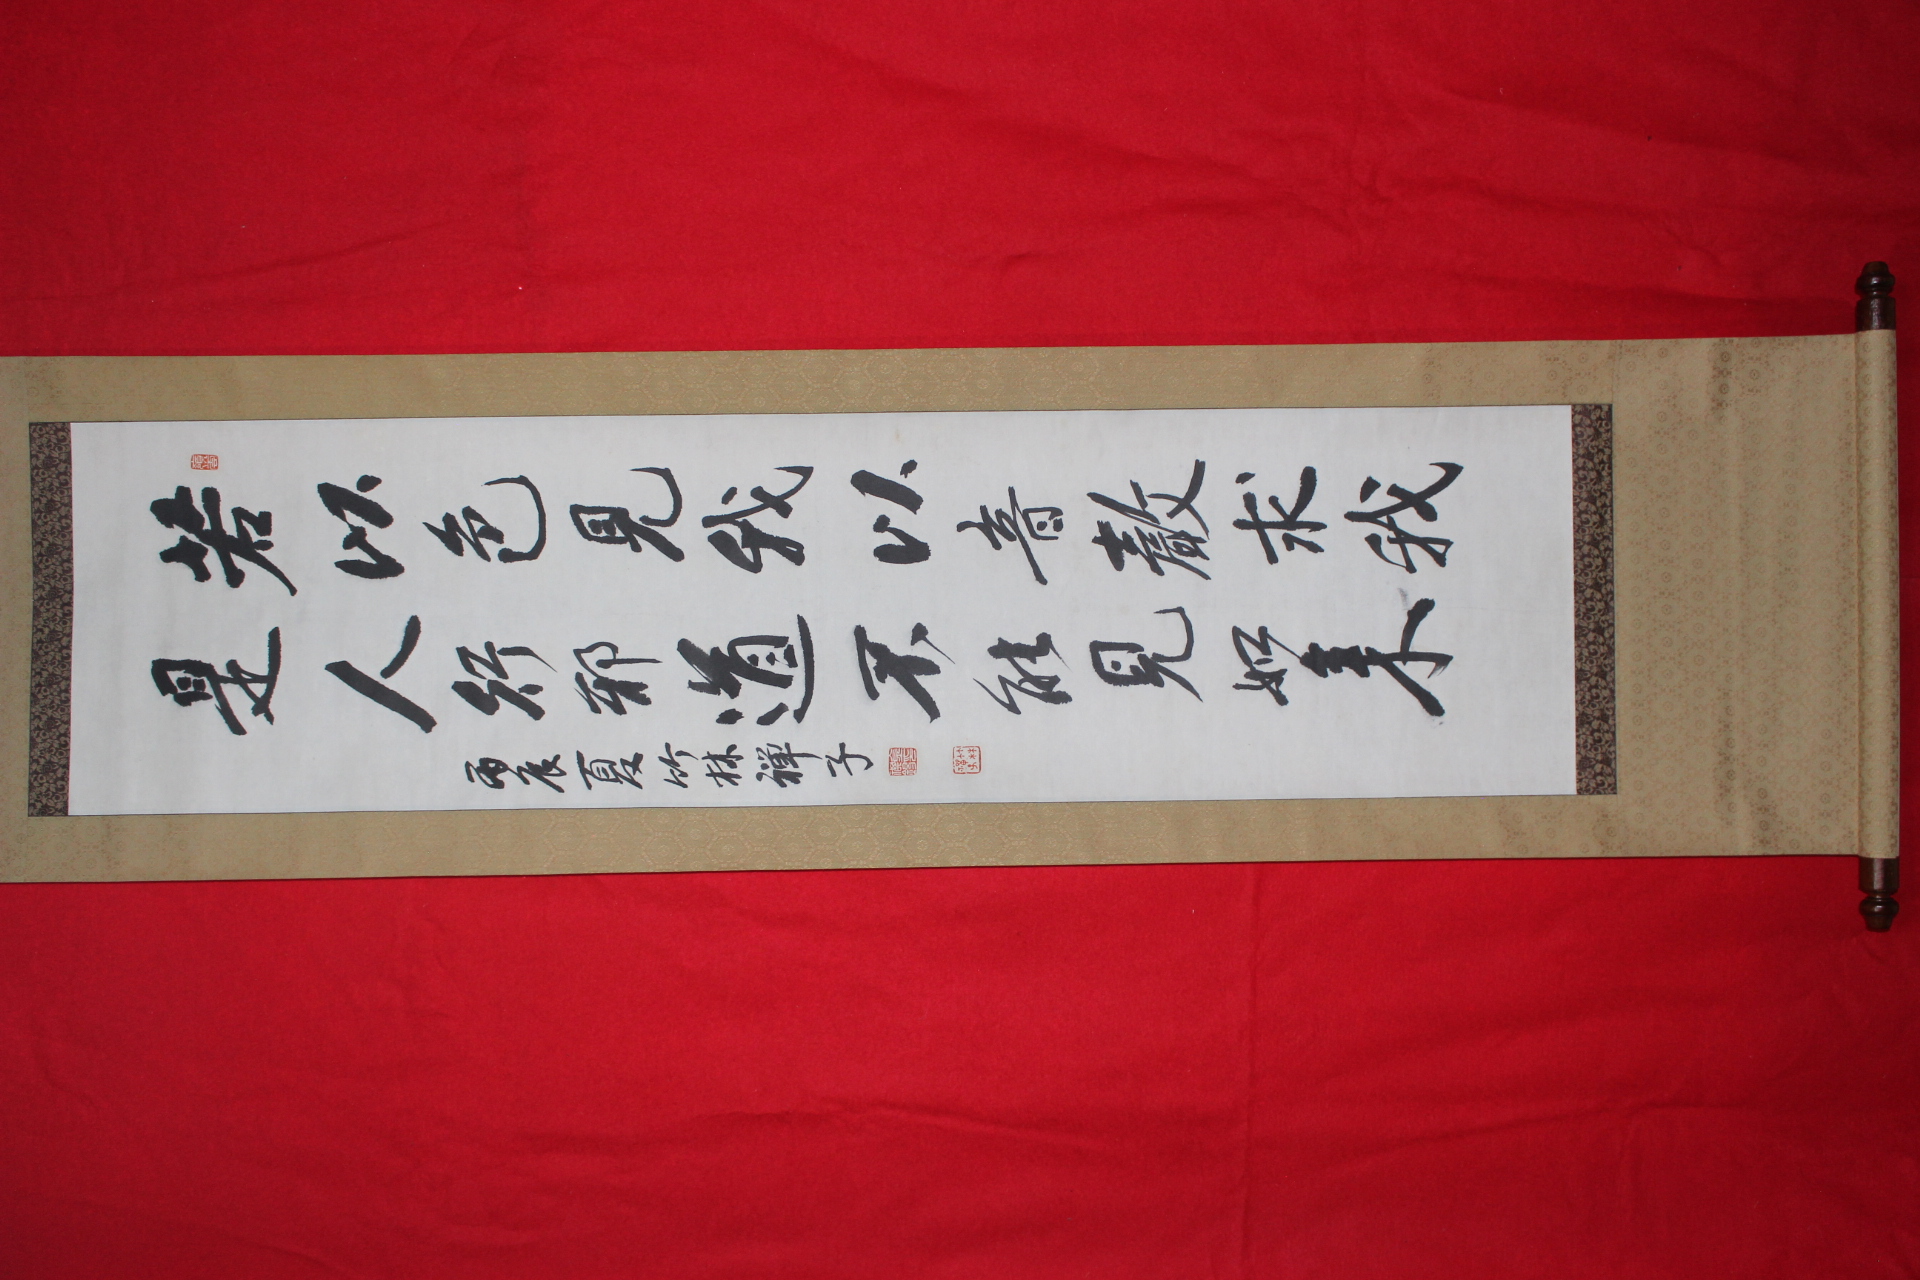 若以色見我以音聲求我
是人行邪道不能見如来
丙辰夏竹林禅子
竹林禅子